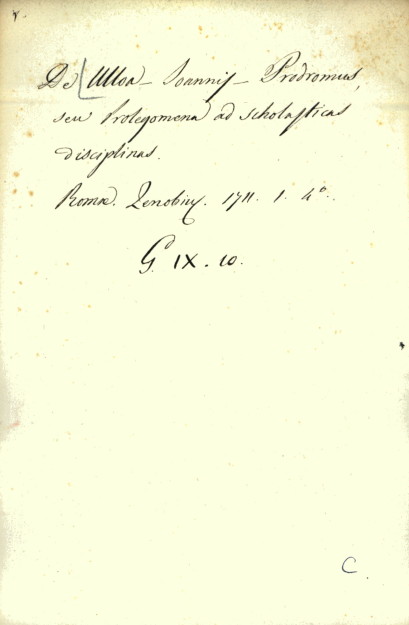 De Ulloa – Joannis – Prodromus,
seu Prolegomena ad scholasticas
disciplinas.
Romæ. Zenobius. 1711. 1. 4°.
G. IX. 10.
C.